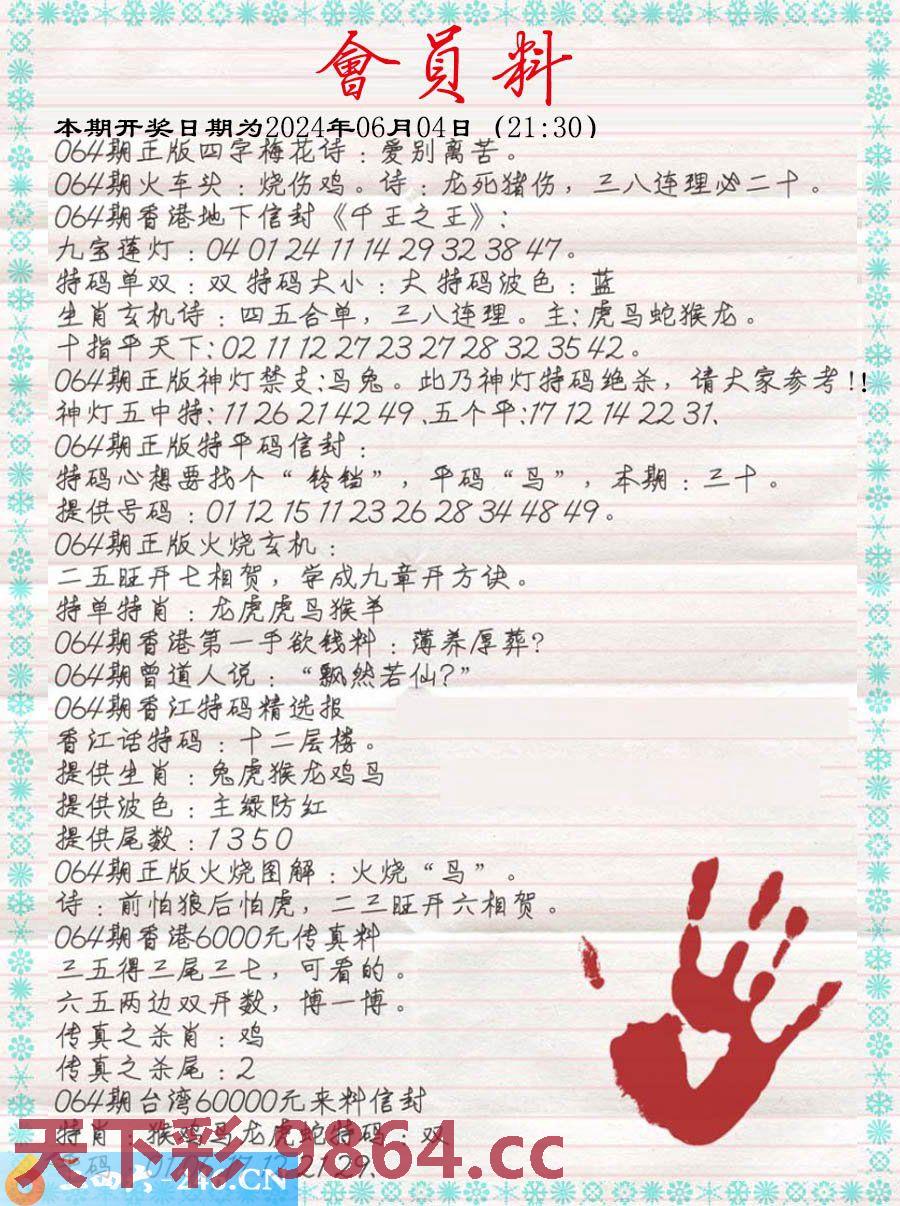 會員料
本期开奖日期为2024年06月04日（21:30）
064期正版四字梅花诗：愛别离苦。
064期火车头：烧伤鸡。诗：龙死猪伤，三八连理必二十。
064期香港地下信封《千王之王》：
九宝莲灯：04 01 24 11 14 29 32 38 47。
特码单双：双 特码大小：大 特码波色：蓝
生肖玄机诗：四五合单，三八连理。主：虎马蛇猴龙。
十指平天下：02 11 12 27 23 27 28 32 35 42。
064期正版神灯禁支：马兔。此乃神灯特码绝杀，请大家参考!!
神灯五中特：11 26 21 42 49、五个平：17 12 14 22 31、
064期正版特平码信封：
特码心想要找个“铃铛”，平码“马”，本期：三十。
提供号码：01 12 15 11 23 26 28 34 48 49。
064期正版火烧玄机：
二五旺开七相贺，学成九章开方诀。
特单特肖：龙虎虎马猴羊
064期香港第一手欲钱料：薄养厚葬?
064期曾道人说：“飘然若仙?”
064期香江特码精选报
香江话特码：十二层楼。
提供生肖：兔虎猴龙鸡马
提供波色：主绿防红
提供尾数：1 3 5 0
064期正版火烧图解：火烧“马”。
诗：前怕狼后怕虎，二三旺开六相贺。
064期香港6000元传真料
三五得三尾三七，可看的。
六五两边双开数，博一博。
传真之杀肖：鸡
传真之杀尾：2
064期台湾60000元来料信封
特肖：猴鸡马龙虎蛇特码：双
21 29、
天下彩 9864.cc
246.CN